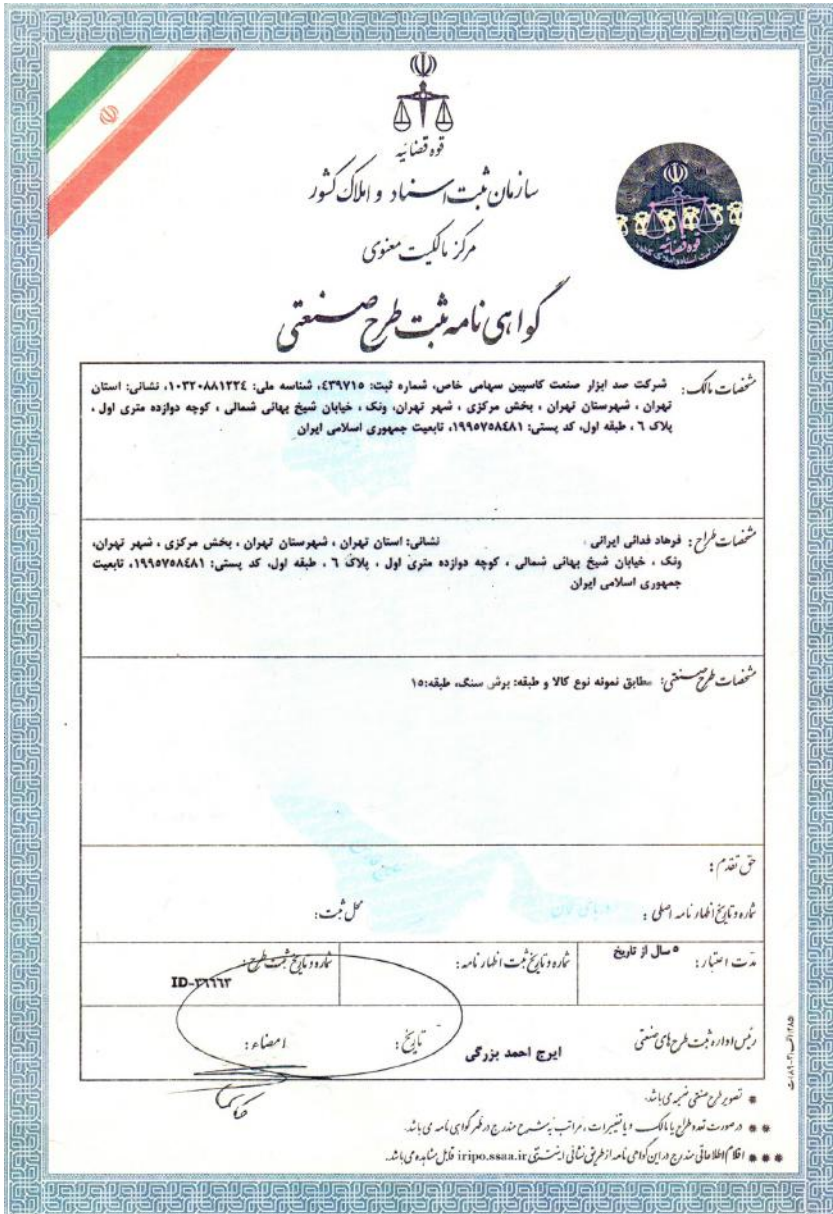 قوه قضائیه
سازمان ثبت اسناد و املاک کشور
مرکز مالکیت معنوی
قوه قضائیه
گواهی نامه ثبت طرح صنعتی
مشخصات مالک: شرکت صد ابزار صنعت کاسپین سهامی خاص، شماره ثبت: ٤٣٩٧١٥، شناسه ملی: ١٠٣٢٠٨٨١٢٢٤، نشانی: استان
تهران ، شهرستان تهران ، بخش مرکزی ، شهر تهران، ونک ، خیابان شیخ بهائی شمالی ، کوچه دوازده متری اول ،
پلاک ٦ ، طبقه اول، کد پستی: ١٩٩٥٧٥٨٤٨١، تابعیت جمهوری اسلامی ایران
مشخصات طراح: فرهاد فدائی ایرانی ، نشانی: استان تهران ، شهرستان تهران ، بخش مرکزی ، شهر تهران،
ونک ، خیابان شیخ بهائی شمالی ، کوچه دوازده متری اول ، پلاک ٦ ، طبقه اول، کد پستی: ١٩٩٥٧٥٨٤٨١، تابعیت
جمهوری اسلامی ایران
مشخصات طرح صنعتی: مطابق نمونه نوع کالا و طبقه: برش سنگ، طبقه:١٥
حق تقدم :
شماره و تاریخ اظهارنامه اصلی : محل ثبت:
مدت اعتبار: ٥ سال از تاریخ
شماره و تاریخ ثبت اظهارنامه:
شماره و تاریخ ثبت طرح:
ID-٢٦٦٦٣
رئیس اداره ثبت طرح های صنعتی ایرج احمد بزرگی تاریخ: امضاء:
* تصویر طرح صنعتی ضمیمه می باشد.
** در صورت تعدد طراح یا مالک و یا تغییرات، مراتب به شرح مندرج در ظهر گواهی نامه می باشد.
*** اقلام اطلاعاتی مندرج در این گواهی نامه از طریق نشانی اینترنتی iripo.ssaa.ir قابل مشاهده می باشد.